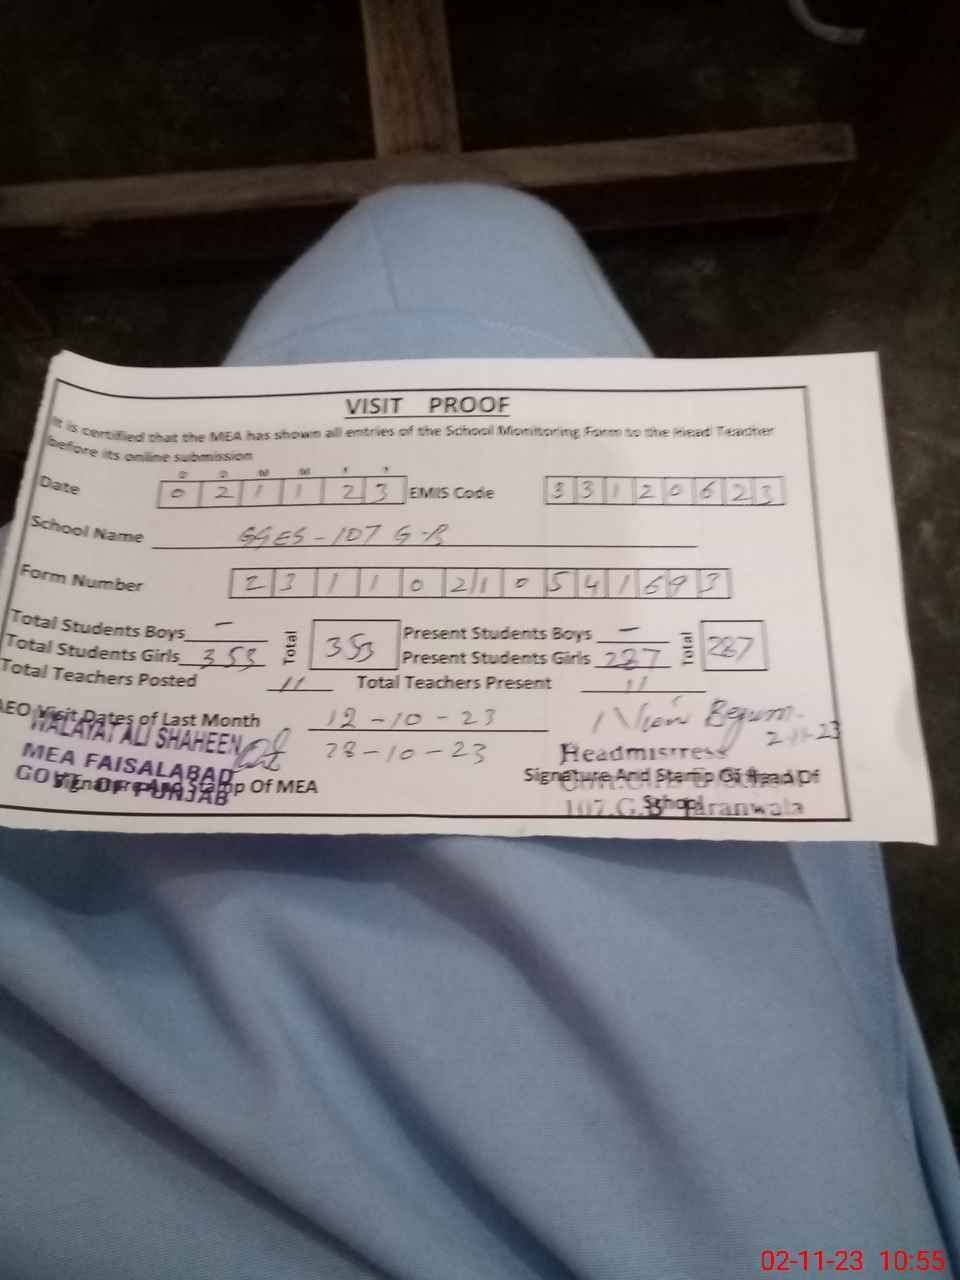 VISIT PROOF
It is certified that the MEA has shown all entries of the School Monitoring Form to the Head Teacher
before its online submission
D D M M Y Y
Date 0 2 1 1 2 3 EMIS Code 3 3 1 2 0 6 2 3
School Name GGES - 107 G-B
Form Number 2 3 1 1 0 2 1 0 5 4 1 6 9 3
Total Students Boys — Total 353 Present Students Boys — Total 287
Total Students Girls 353 Present Students Girls 287
Total Teachers Posted 11 Total Teachers Present 11
AEO Visit Dates of Last Month 12-10-23
28-10-23
Begum 2-11-23
WALAYAT ALI SHAHEEN
MEA FAISALABAD
GOVT. OF PUNJAB
Signature And Stamp Of MEA
Headmistress
Signature And Stamp Of Head Of
School
107.G.B Jaranwala
02-11-23 10:55